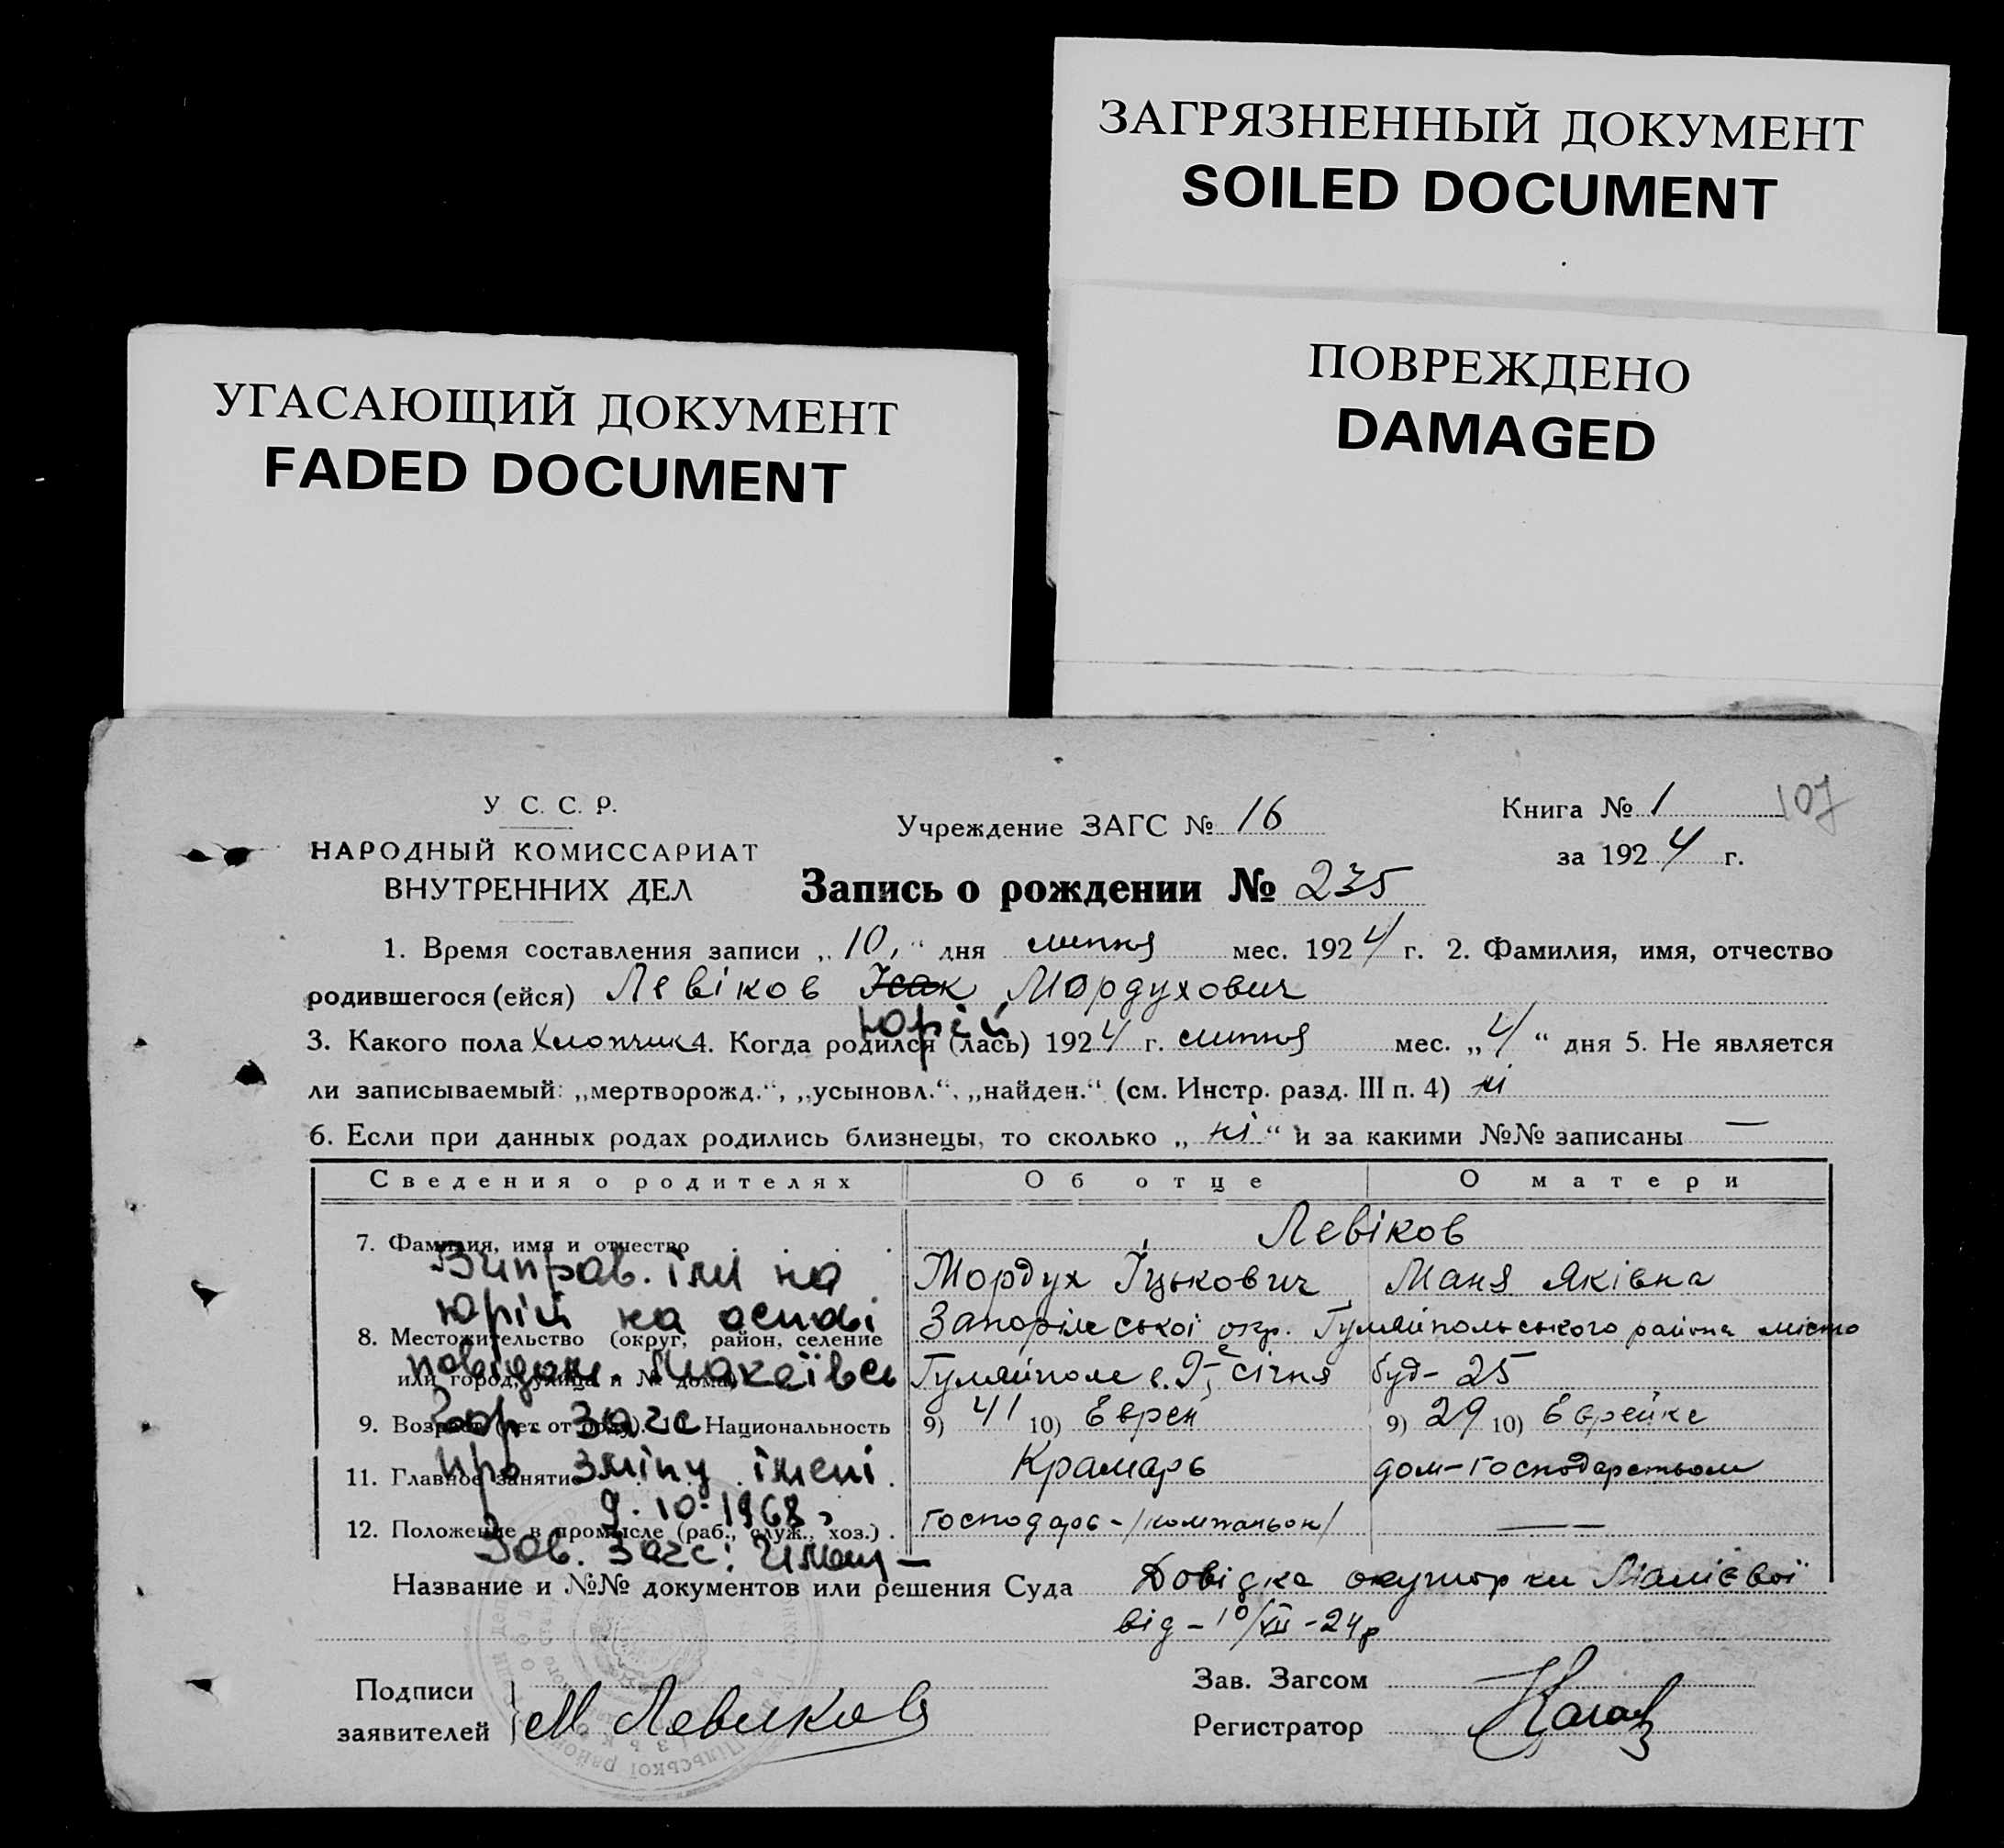 ЗАГРЯЗНЕННЫЙ ДОКУМЕНТ
SOILED DOCUMENT
ПОВРЕЖДЕНО
DAMAGED
УГАСАЮЩИЙ ДОКУМЕНТ
FADED DOCUMENT
У С. С. Р.
НАРОДНЫЙ КОМИССАРИАТ
ВНУТРЕННИХ ДЕЛ
Учреждение ЗАГС № 16
Книга № 1 107
за 1924 г.
Запись о рождении № 235
1. Время составления записи „10," дня липня мес. 1924 г. 2. Фамилия, имя, отчество
родившегося (ейся) Левіков Ісак Мордухович
Юрій
3. Какого пола Хлопчик 4. Когда родился (лась) 1924 г. липня мес. „4" дня 5. Не является
ли записываемый: „мертворожд.", „усыновл.", „найден." (см. Инстр. разд. III п. 4) ні
6. Если при данных родах родились близнецы, то сколько „ні" и за какими №№ записаны —
Сведения о родителях Об отце О матери
7. Фамилия, имя и отчество Левіков
Мордух Іцькович Маня Яківна
8. Местожительство (округ, район, селение Запорізської окр. Гуляйпольського района місто
или город, улица и № дома) Гуляйполе в. 9-е січня буд- 25
9. Возраст (лет от роду). 10. Национальность 9) 41 10) Еврей 9) 29 10) Еврейка
11. Главное занятие Крамарь дом-господарством
12. Положение в промысле (раб., служ., хоз.) господарь-/компаньон/ —
Виправ. імя на
Юрій на основі
повідом. Макеївсь
гор. загс
про зміну імені.
9.10.1968
Зав. загс:
Название и №№ документов или решения Суда Довідка акушорки
від - 10/VII - 24р
Подписи
заявителей М Левиков
Зав. Загсом
Регистратор